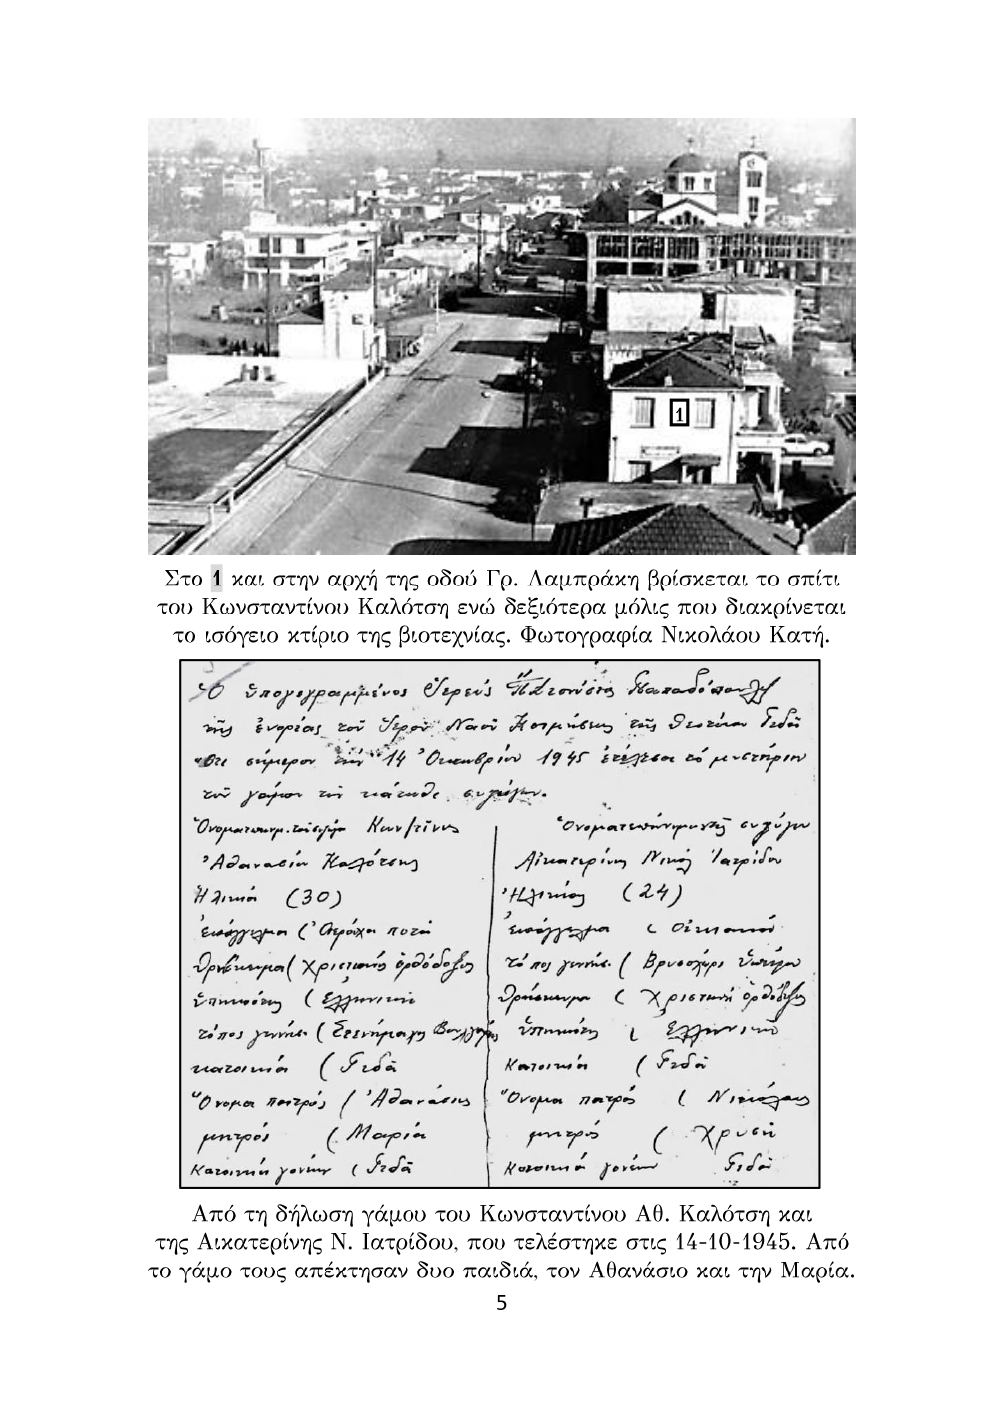 1
Στο 1 και στην αρχή της οδού Γρ. Λαμπράκη βρίσκεται το σπίτι
του Κωνσταντίνου Καλότση ενώ δεξιότερα μόλις που διακρίνεται
το ισόγειο κτίριο της βιοτεχνίας. Φωτογραφία Νικολάου Κατή.
Ὁ ὑπογεγραμμένος Ἱερεύς Παπαδόπουλος
τῆς ἐνορίας τοῦ Ἱεροῦ Ναοῦ Κοιμήσεως τῆς Θεοτόκου Γιδᾶ
ὅτι σήμερον τήν 14 Ὀκτωβρίου 1945 ἐτέλεσα τό μυστήριον
τοῦ γάμου τῶν κάτωθι συζύγων.
Κων/τῖνος
Ἀθανασίου Καλότσης
Ἡλικία (30)
ἐπάγγελμα (
Θρήσκευμα (Χριστιανός ὀρθόδοξος
ὑπηκοότης (Ἑλληνική
τόπος γεννήσ. (
κατοικία (Γιδᾶ
Ὄνομα πατρός (Ἀθανάσιος
μητρός (Μαρία
Κατοικία γονέων (Γιδᾶ
Ὀνοματεπώνυμον τῆς συζύγου
Αἰκατερίνη Νικολ Ἰατρίδου
Ἡλικίας (24)
ἐπάγγελμα ( οἰκιακά
τόπος γεννήσ. (
Θρήσκευμα ( Χριστιανή ὀρθόδοξος
ὑπηκοότης ( Ἑλληνική
Κατοικία (Γιδᾶ
Ὄνομα πατρός ( Νικόλαος
μητρός ( Χρυσῆ
Κατοικία γονέων Γιδᾶ
Από τη δήλωση γάμου του Κωνσταντίνου Αθ. Καλότση και
της Αικατερίνης Ν. Ιατρίδου, που τελέστηκε στις 14-10-1945. Από
το γάμο τους απέκτησαν δυο παιδιά, τον Αθανάσιο και την Μαρία.
5